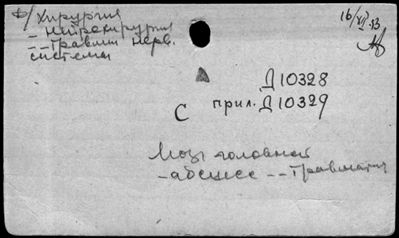 Ф/ хирургия
- нейрохирургия
-- травмы нерв.
системы
16/VII.53
Д 10328
С прил. Д 10329
Мозг головной
- абсцесс -- травматич